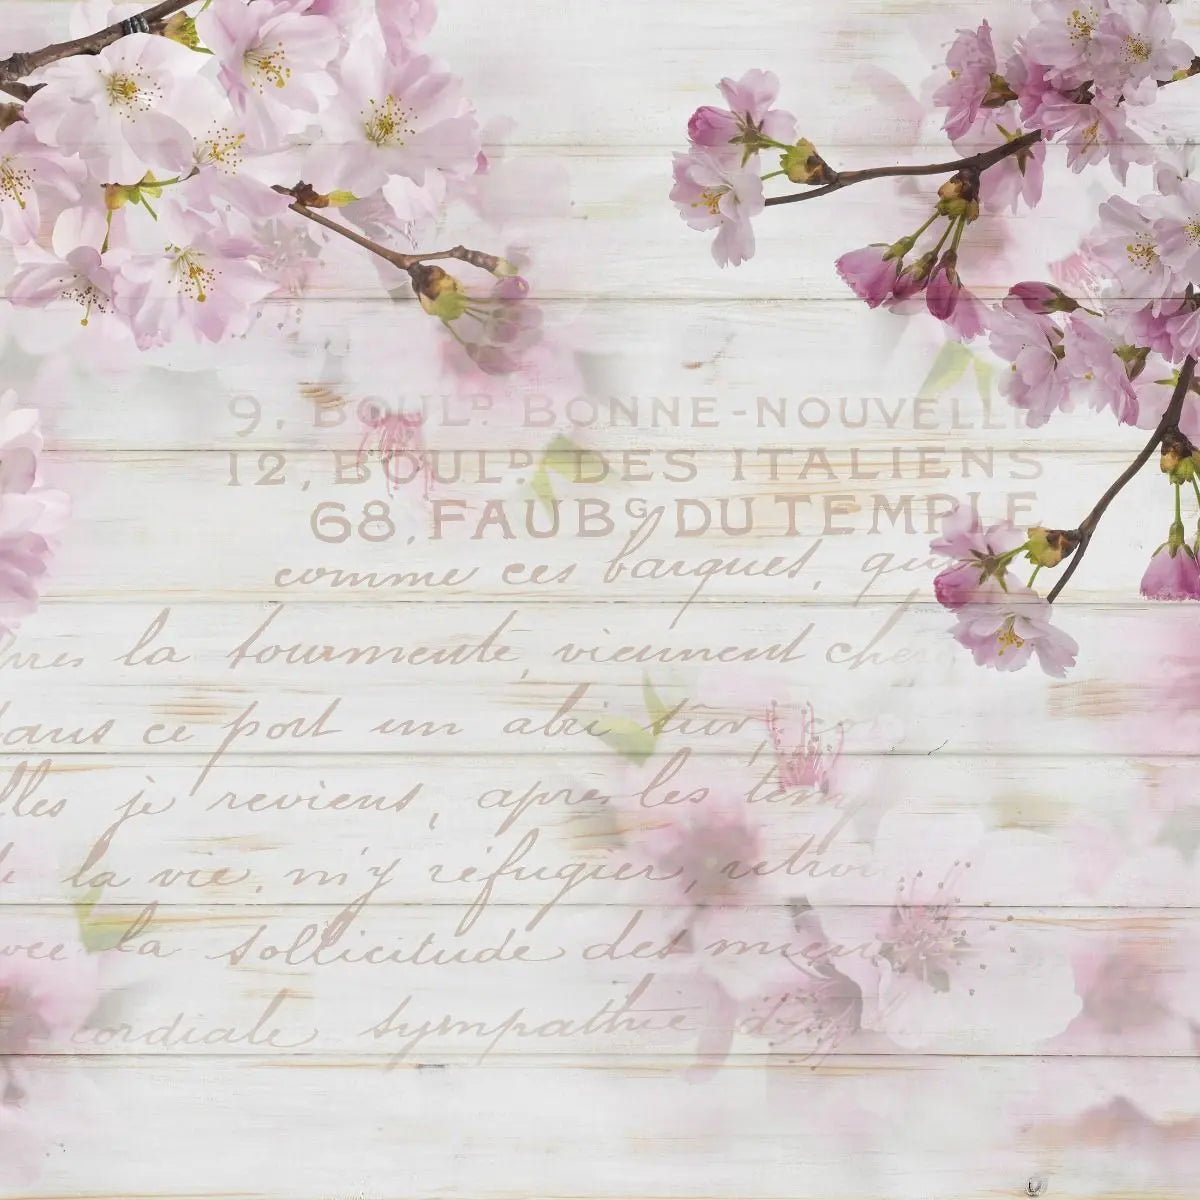 9, BOULD. BONNE-NOUVELLE
12, BOULD. DES ITALIENS
68, FAUBG DU TEMPLE
comme ces barques, qui
la tourmente, viennent
dans ce port un abri sûr,
je reviens, après les
la vie, m'y réfugier,
la sollicitude des
cordiale sympathie